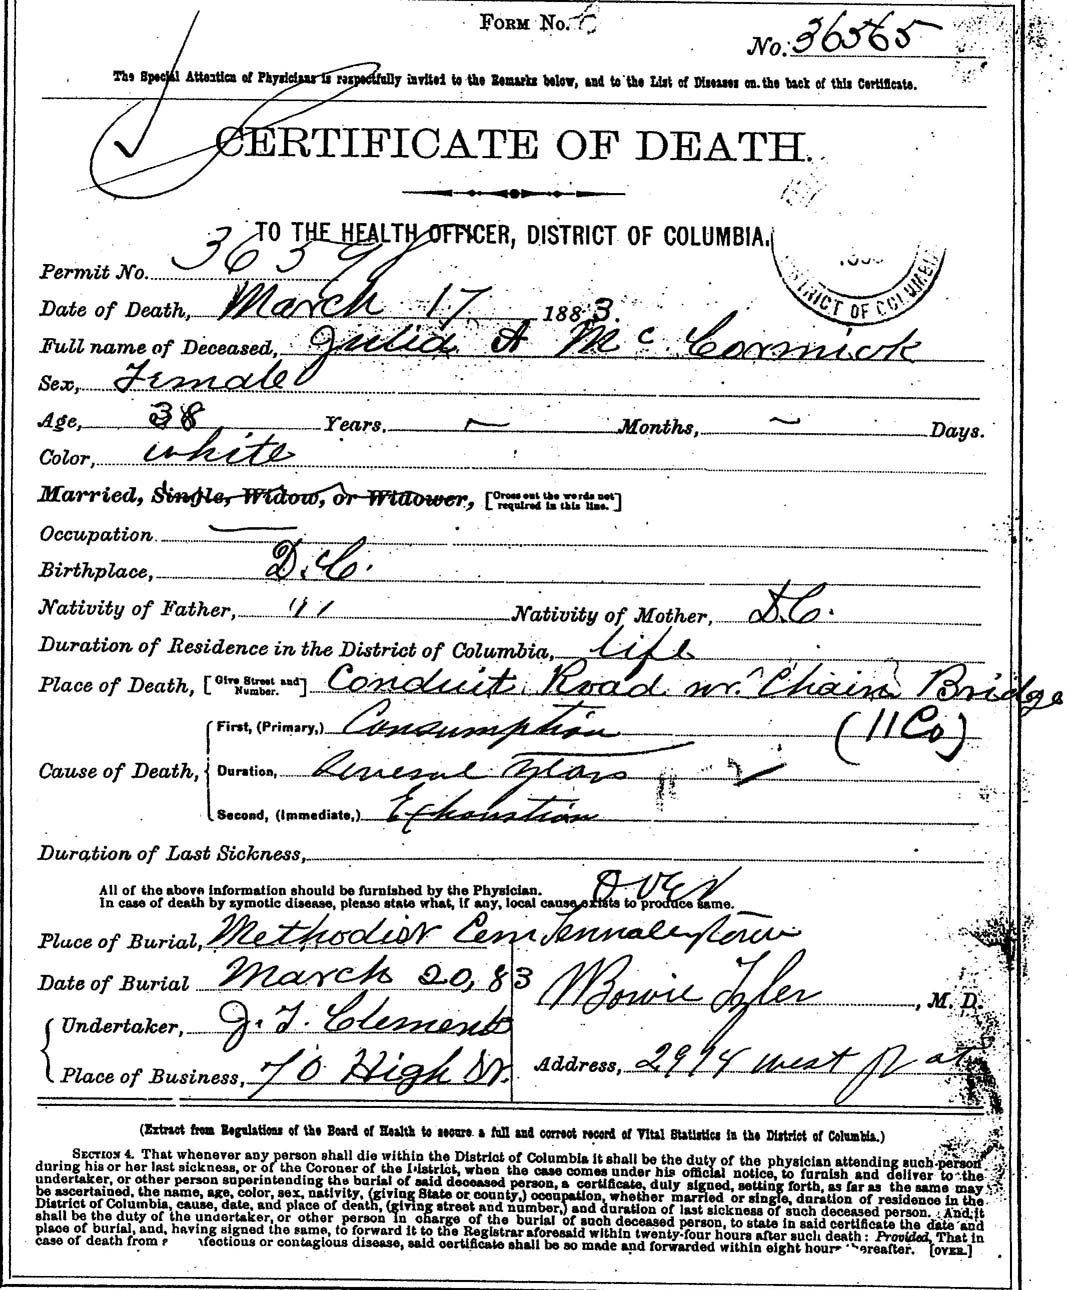 FORM No. 5
No. 36565
The Special Attention of Physicians is respectfully invited to the Remarks below, and to the List of Diseases on the back of this Certificate.
CERTIFICATE OF DEATH.
TO THE HEALTH OFFICER, DISTRICT OF COLUMBIA.
DISTRICT OF COLUMBIA
Permit No. 3659
Date of Death, March 17 1883.
Full name of Deceased, Julia A McCormick
Sex, Female
Age, 38 Years, — Months, ~ Days.
Color, white
Married, Single, Widow, or Widower, [Cross out the words not required in this line.]
Occupation —
Birthplace, D.C.
Nativity of Father, " Nativity of Mother, D.C.
Duration of Residence in the District of Columbia, life
Place of Death, [Give Street and Number.] Conduit Road nr. Chain Bridge
(11 Co)
Cause of Death, First, (Primary,) Consumption
Duration, several years
Second, (Immediate,) Exhaustion
Duration of Last Sickness,
All of the above information should be furnished by the Physician.
OVER
In case of death by zymotic disease, please state what, if any, local cause exists to produce same.
Place of Burial, Methodist Cem Tennaleytown
Date of Burial March 20, 83
Bowie Tyler, M. D.
Undertaker, J. T. Clements
Place of Business, 70 High St.
Address, 2914 West
(Extract from Regulations of the Board of Health to secure a full and correct record of Vital Statistics in the District of Columbia.)
SECTION 4. That whenever any person shall die within the District of Columbia it shall be the duty of the physician attending such person
during his or her last sickness, or of the Coroner of the District, when the case comes under his official notice, to furnish and deliver to the
undertaker, or other person superintending the burial of said deceased person, a certificate, duly signed, setting forth, as far as the same may
be ascertained, the name, age, color, sex, nativity, (giving State or county,) occupation, whether married or single, duration of residence in the
District of Columbia, cause, date, and place of death, (giving street and number,) and duration of last sickness of such deceased person. And it
shall be the duty of the undertaker, or other person in charge of the burial of such deceased person, to state in said certificate the date and
place of burial, and, having signed the same, to forward it to the Registrar aforesaid within twenty-four hours after such death: Provided, That in
case of death from infectious or contagious disease, said certificate shall be so made and forwarded within eight hours thereafter. [OVER.]